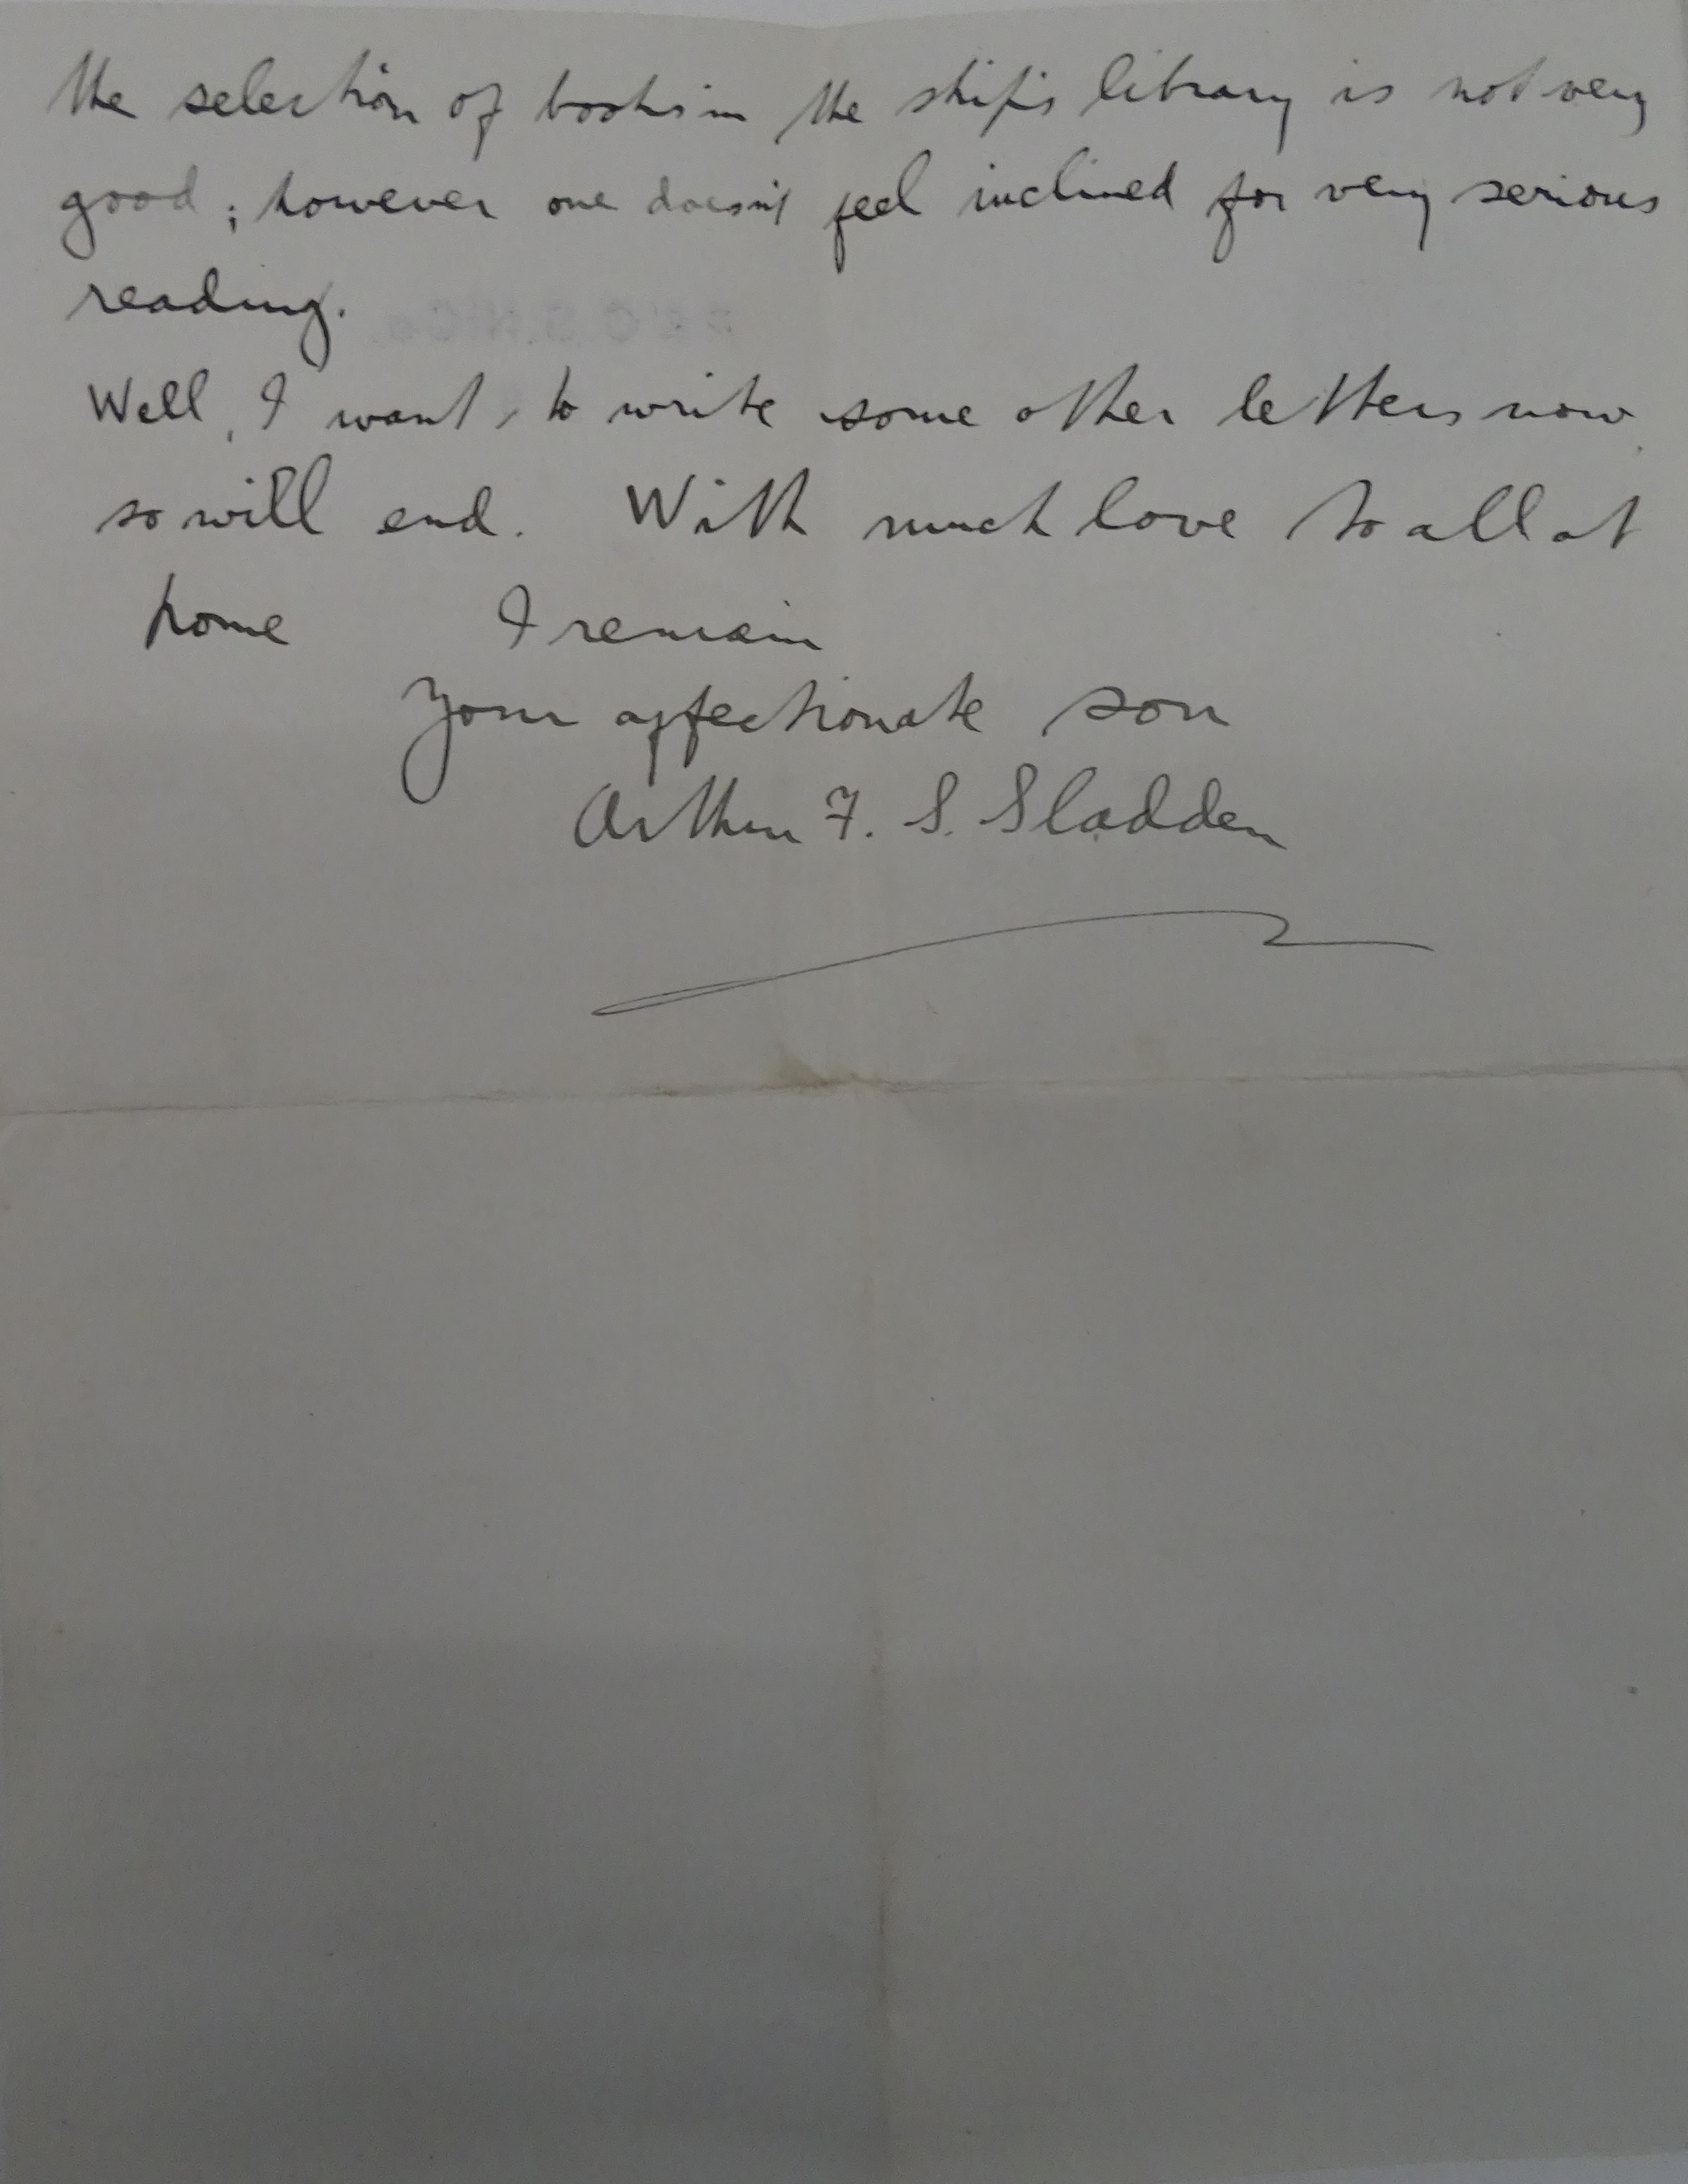 the selection of books in the ship's library is not very
good; however one doesn't feel inclined for very serious
reading.
Well, I want to write some other letters now
so will end. With much love to all at
home I remain
Your affectionate son
Arthur F. S. Sladden